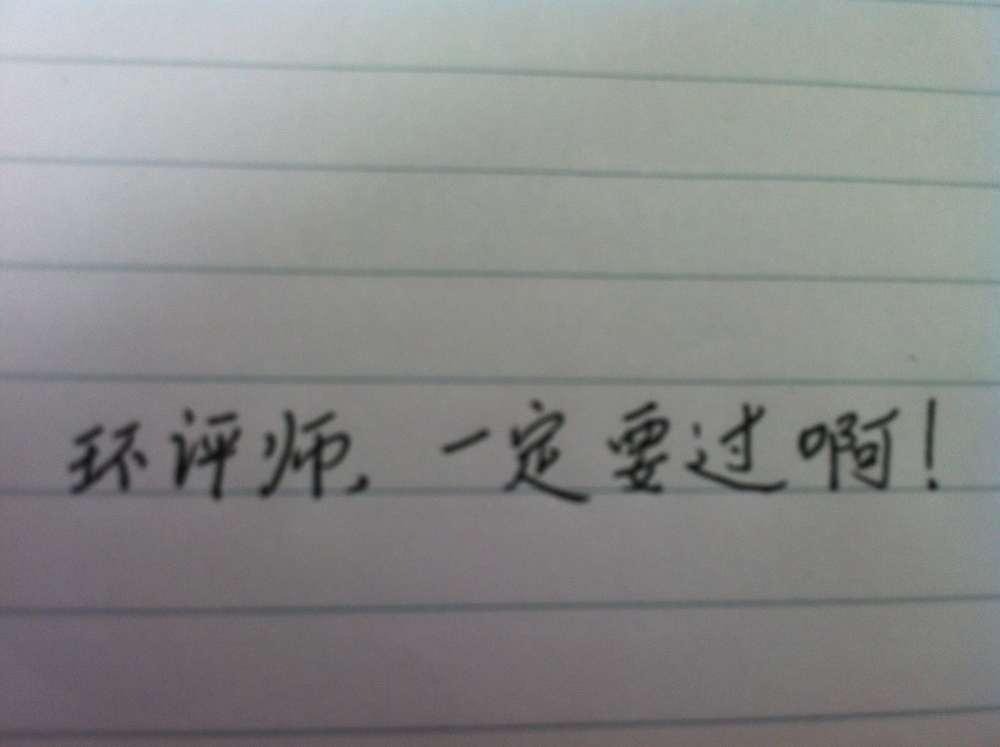 环评师，一定要过啊！